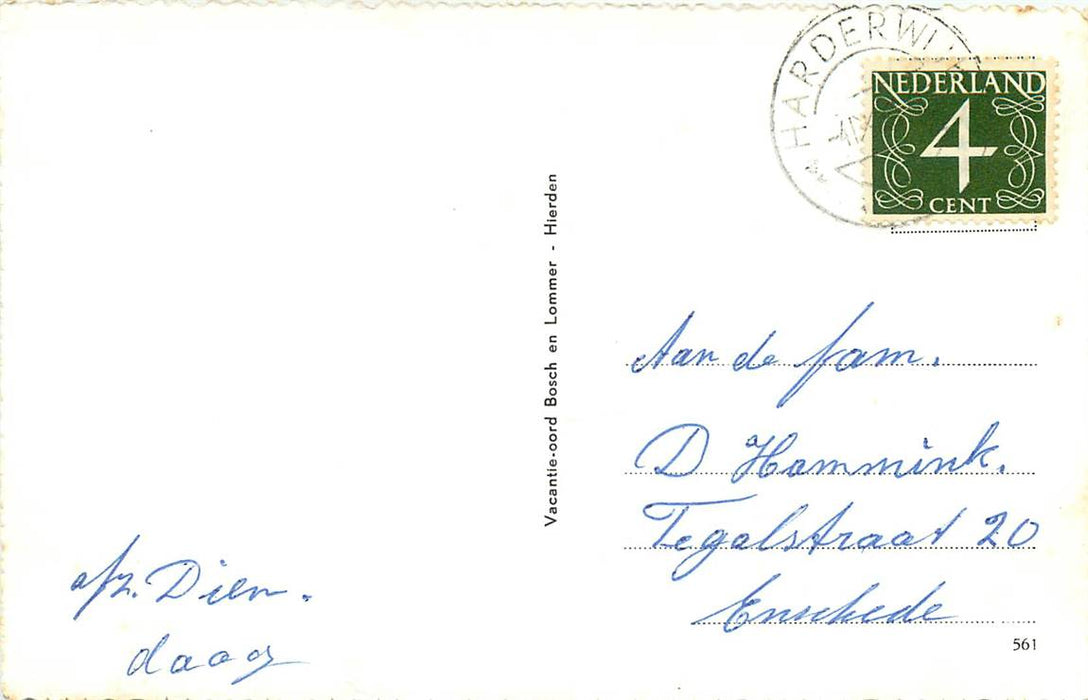 HARDERWIJK
NEDERLAND
4
CENT
Vacantie-oord Bosch en Lommer - Hierden
Aan de fam.
D Hammink.
Tegalstraat 20
Enschede
561
afz. Dien.
daag